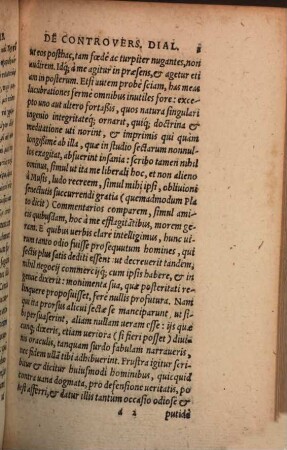 DE CONTROVERS. DIAL.
ut eos posthac, tam fœdè ac turpiter nugantes, non
Idq; à me agitur in præsens, & agetur eti
in posterum. Etsi autem probè sciam, has meas
lucubrationes fermè omnibus inutiles fore: exce-
uno aut altero fortaßis, quos natura singulari
ingenio integritateq; ornarit, quiq; doctrina &
meditatione uti norint, & imprimis qui quàm
longißimè ab illa, quæ in studio sectarum nonnul
exagitat, absuerint insania: scribo tamen nihil
minus, simul ut ita me liberali hoc, et non alieno
à Musis, reorem, simul mihi ipsi, obliuioni
senectutis succurrendi gratia (quemadmodum Pla
to dicit) Commentarios comparem, simul ami-
quibusdam, hoc à me efflagitãtibus, morem ge-
ram. E quibus uerbis clarè intelligimus, hunc ui-
tanto odio fuisse prosequutum homines, qui
sectis plus satis dediti essent: ut decreuerit tandem,
nihil negocij commercijq; cum ipsis habere, & in
gere dixerit: monimenta sua, quæ posteritati re-
linquere proposuisset, ferè nullis profutura. Nam
qui prorsus alicui sectæ se manciparunt, ut si
persuaserint, aliam nullam ueram esse: ijs quæ
dixeris, etiam ueriora (si fieri posset) diui
oraculis, tanquam surdo fabulam narraueris,
fidem ullã tibi adhibuerint. Frustra igitur scri
& dicitur huiusmodi hominibus, quicquid
contra uana dogmata, pro defensione ueritatis, po
asserri, & datur illis tantum occasio odiosè &
a 2 putidè